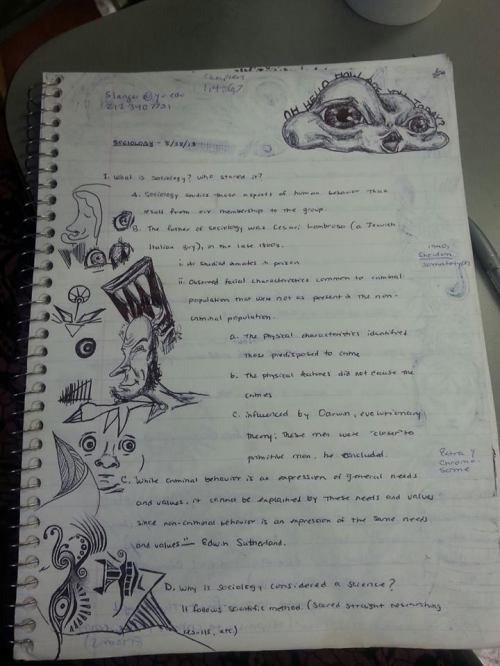 Chapters
1, 14, 6, 7
OH HELLO HOW ARE YOU TODAY?
SOCIOLOGY - 8/28/13
I. What is sociology? Who started it?
A. Sociology studies those aspects of human behavior that
result from our membership to the group.
B. The father of sociology was Cesari Lombroso (a Jewish
Italian guy), in the late 1800s.
i. He studied inmates in prison
ii. Observed facial characteristics common to criminal
population that were not as present in the non-
criminal population.
1940s
Sheldon
somatotypes
a. The physical characteristics identified
those predisposed to crime
b. The physical features did not cause the
crimes
c. influenced by Darwin, evolutionary
theory; These men were "closer" to
primitive man, he concluded.
Extra Y
chromo-
some
C. While criminal behavior is an expression of general needs
and values, it cannot be explained by these needs and values
since non-criminal behavior is an expression of the same needs
and values" - Edwin Sutherland.
D. Why is sociology considered a science?
It follows scientific method. (Scared straight
results, etc)